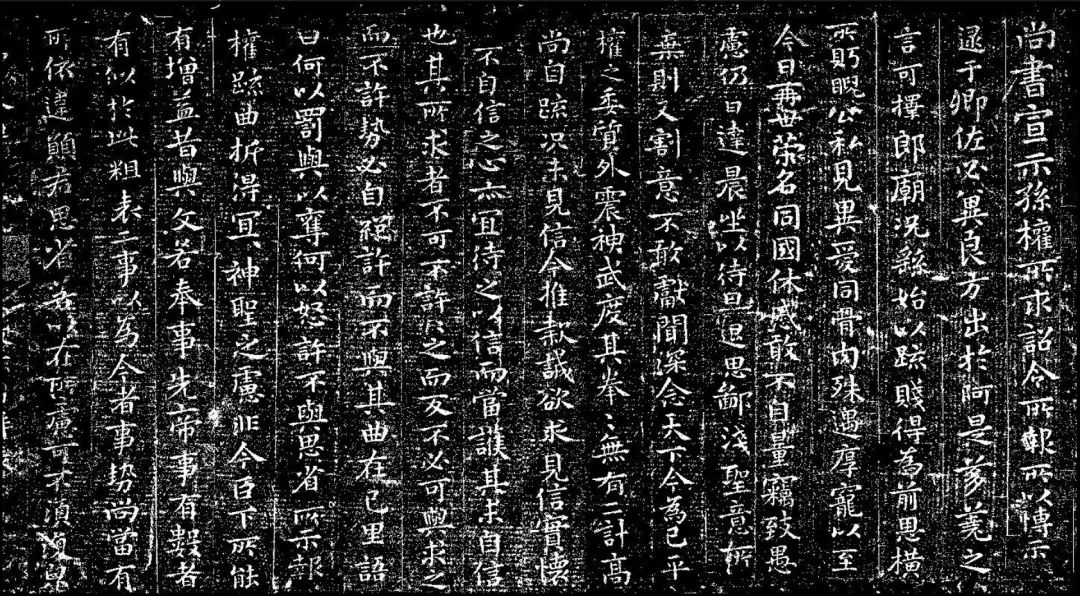 尚書宣示孫權所求詔令所報所以博示
逮于卿佐必冀良方出於阿是芻蕘之
言可擇郎廟況繇始以疏賤得為前恩橫
所盻睨公私見異愛同骨肉殊遇厚寵以至
今日再世榮名同國休慼敢不自量竊致愚
慮仍日達晨坐以待旦退思鄙淺聖意所
棄則又割意不敢獻聞深念天下今為已平
權之委質外震神武度其拳〻無有二計高
尚自疏況未見信今推款誠欲求見信實懷
不自信之心亦宜待之以信而當護其未自信
也其所求者不可不許〻之而反不必可與求之
而不許勢必自絕許而不與其曲在己里語
曰何以罰與以奪何以怒許不與思省所示報
權疏曲折得宜〻神聖之慮非今臣下所能
有增益昔與文若奉事先帝事有數者
有似於此粗表二事以為今者事勢尚當有
所依違願君思省若以在所慮可不須復皃